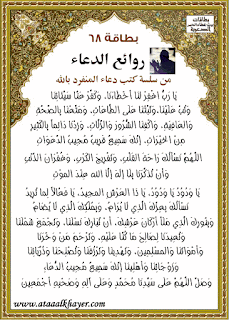 بطاقة ٦٨
روائع الدعاء
من سلسة كتب دعاء المنفرد بالله
يَا رَبُّ اغْفِرْ لَنَا أَخْطَاءَنَا، وَكَفِّرْ عَنَّا سَيِّئَاتِنَا
وَتُبْ عَلَيْنَا، وَثَبِّتْنَا عَلَى الطَّاعَاتِ، وَمَتِّعْنَا بِالصِّحَّةِ
وَالعَافِيَةِ، وَاكْفِنَا الشُّرُورَ وَالزَّلَّاتِ، وَزِدْنَا دَائِماً بِالكَثِيرِ
مِنَ الخَيْرَاتِ، إِنَّكَ سَمِيعٌ قَرِيبٌ مُجِيبُ الدَّعَوَاتِ
اللَّهُمَّ نَسْأَلُكَ رَاحَةَ القَلْبِ، وَتَفْرِيجَ الكَرْبِ، وَغُفْرَانَ الذَّنْبِ
وَأَنْ تُذَكِّرَنَا بِلَا إِلَهَ إِلَّا اللهُ عِنْدَ المَوْتِ
يَا وَدُودُ يَا وَدُودُ، يَا ذَا العَرْشِ المَجِيدُ، يَا فَعَّالاً لِمَا تُرِيدُ
نَسْأَلُكَ بِعِزِّكَ الَّذِي لَا يُرَامُ، وَبِمُلْكِكَ الَّذِي لَا يُضَامُ
وَبِنُورِكَ الَّذِي مَلَأَ أَرْكَانَ عَرْشِكَ، أَنْ تُبَارِكَ نَسْلَنَا، وَتَجْمَعَ شَمْلَنَا
وَتُعِيدَنَا لِصَالِحِ مَا كُنَّا عَلَيْهِ، وَتَرْحَمَ مَنْ
وَأَمْوَاتَنَا وَالمُسْلِمِينَ، وَتَهْدِينَا وَتَرْزُقَنَا وَتُصْلِحَنَا وَذُرِّيَّاتِنَا
وَزَوْجَاتِنَا وَأَهْلِينَا إِنَّكَ سَمِيعٌ مُجِيبُ الدُّعَاءِ
وَصَلِّ اللَّهُمَّ عَلَى سَيِّدِنَا مُحَمَّدٍ وَعَلَى آلِهِ وَصَحْبِهِ أَجْمَعِينَ
www.ataaalkhayer.com